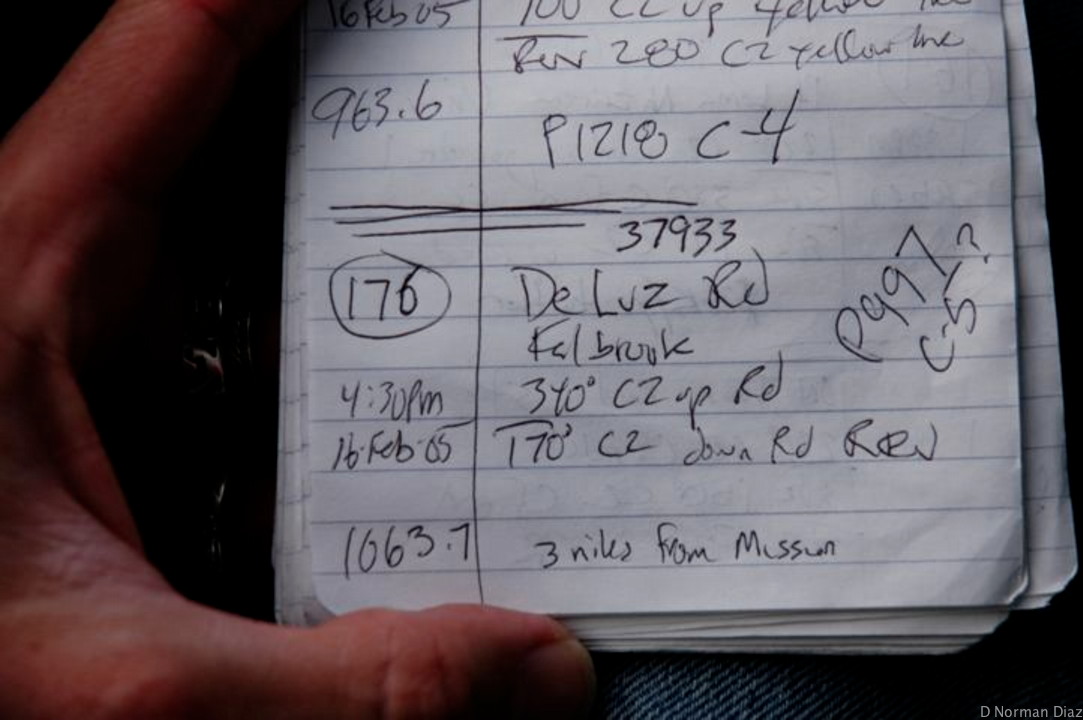 16 Feb 05 100 C2 up yellow line
Rev 280° C2 yellow line
963.6
P1218 C-4
37933
176 De Luz Rd
Falbrook
P997
C-5Y?
4:30pm 340° C2 up Rd
16-Feb-05 170° C2 down Rd Rev
1063.7 3 miles from Mission
D Norman Diaz